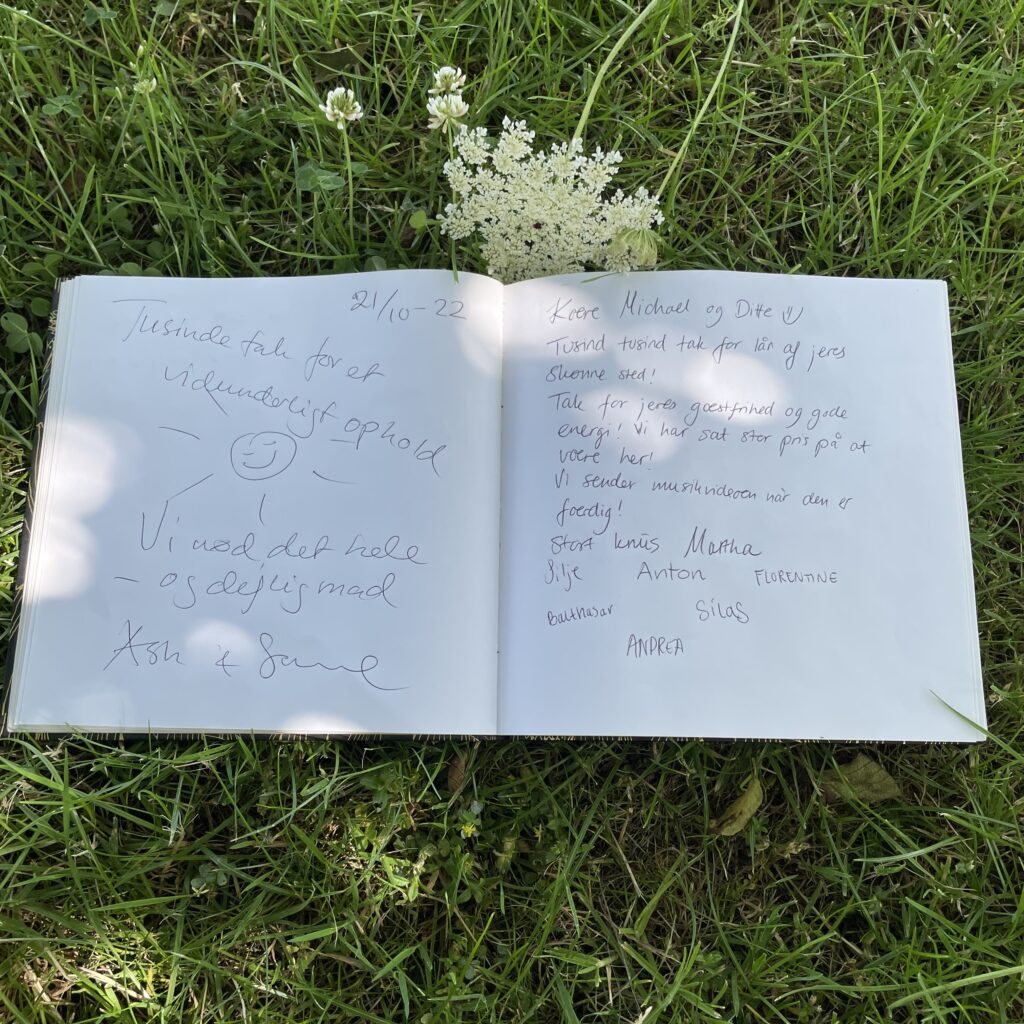 21/10-22
Tusinde tak for et
vidunderligt ophold
Vi nød det hele
- og dejlig mad
Ask & Sanne
Kære Michael og Ditte
Tusind tusind tak for lån af jeres
skønne sted!
Tak for jeres gæstfrihed og gode
energi! Vi har sat stor pris på at
være her!
Vi sender musikvideoen når den er
færdig!
Stort knüs Martha
Silje Anton FLORENTINE
Balthasar Silas
ANDREA